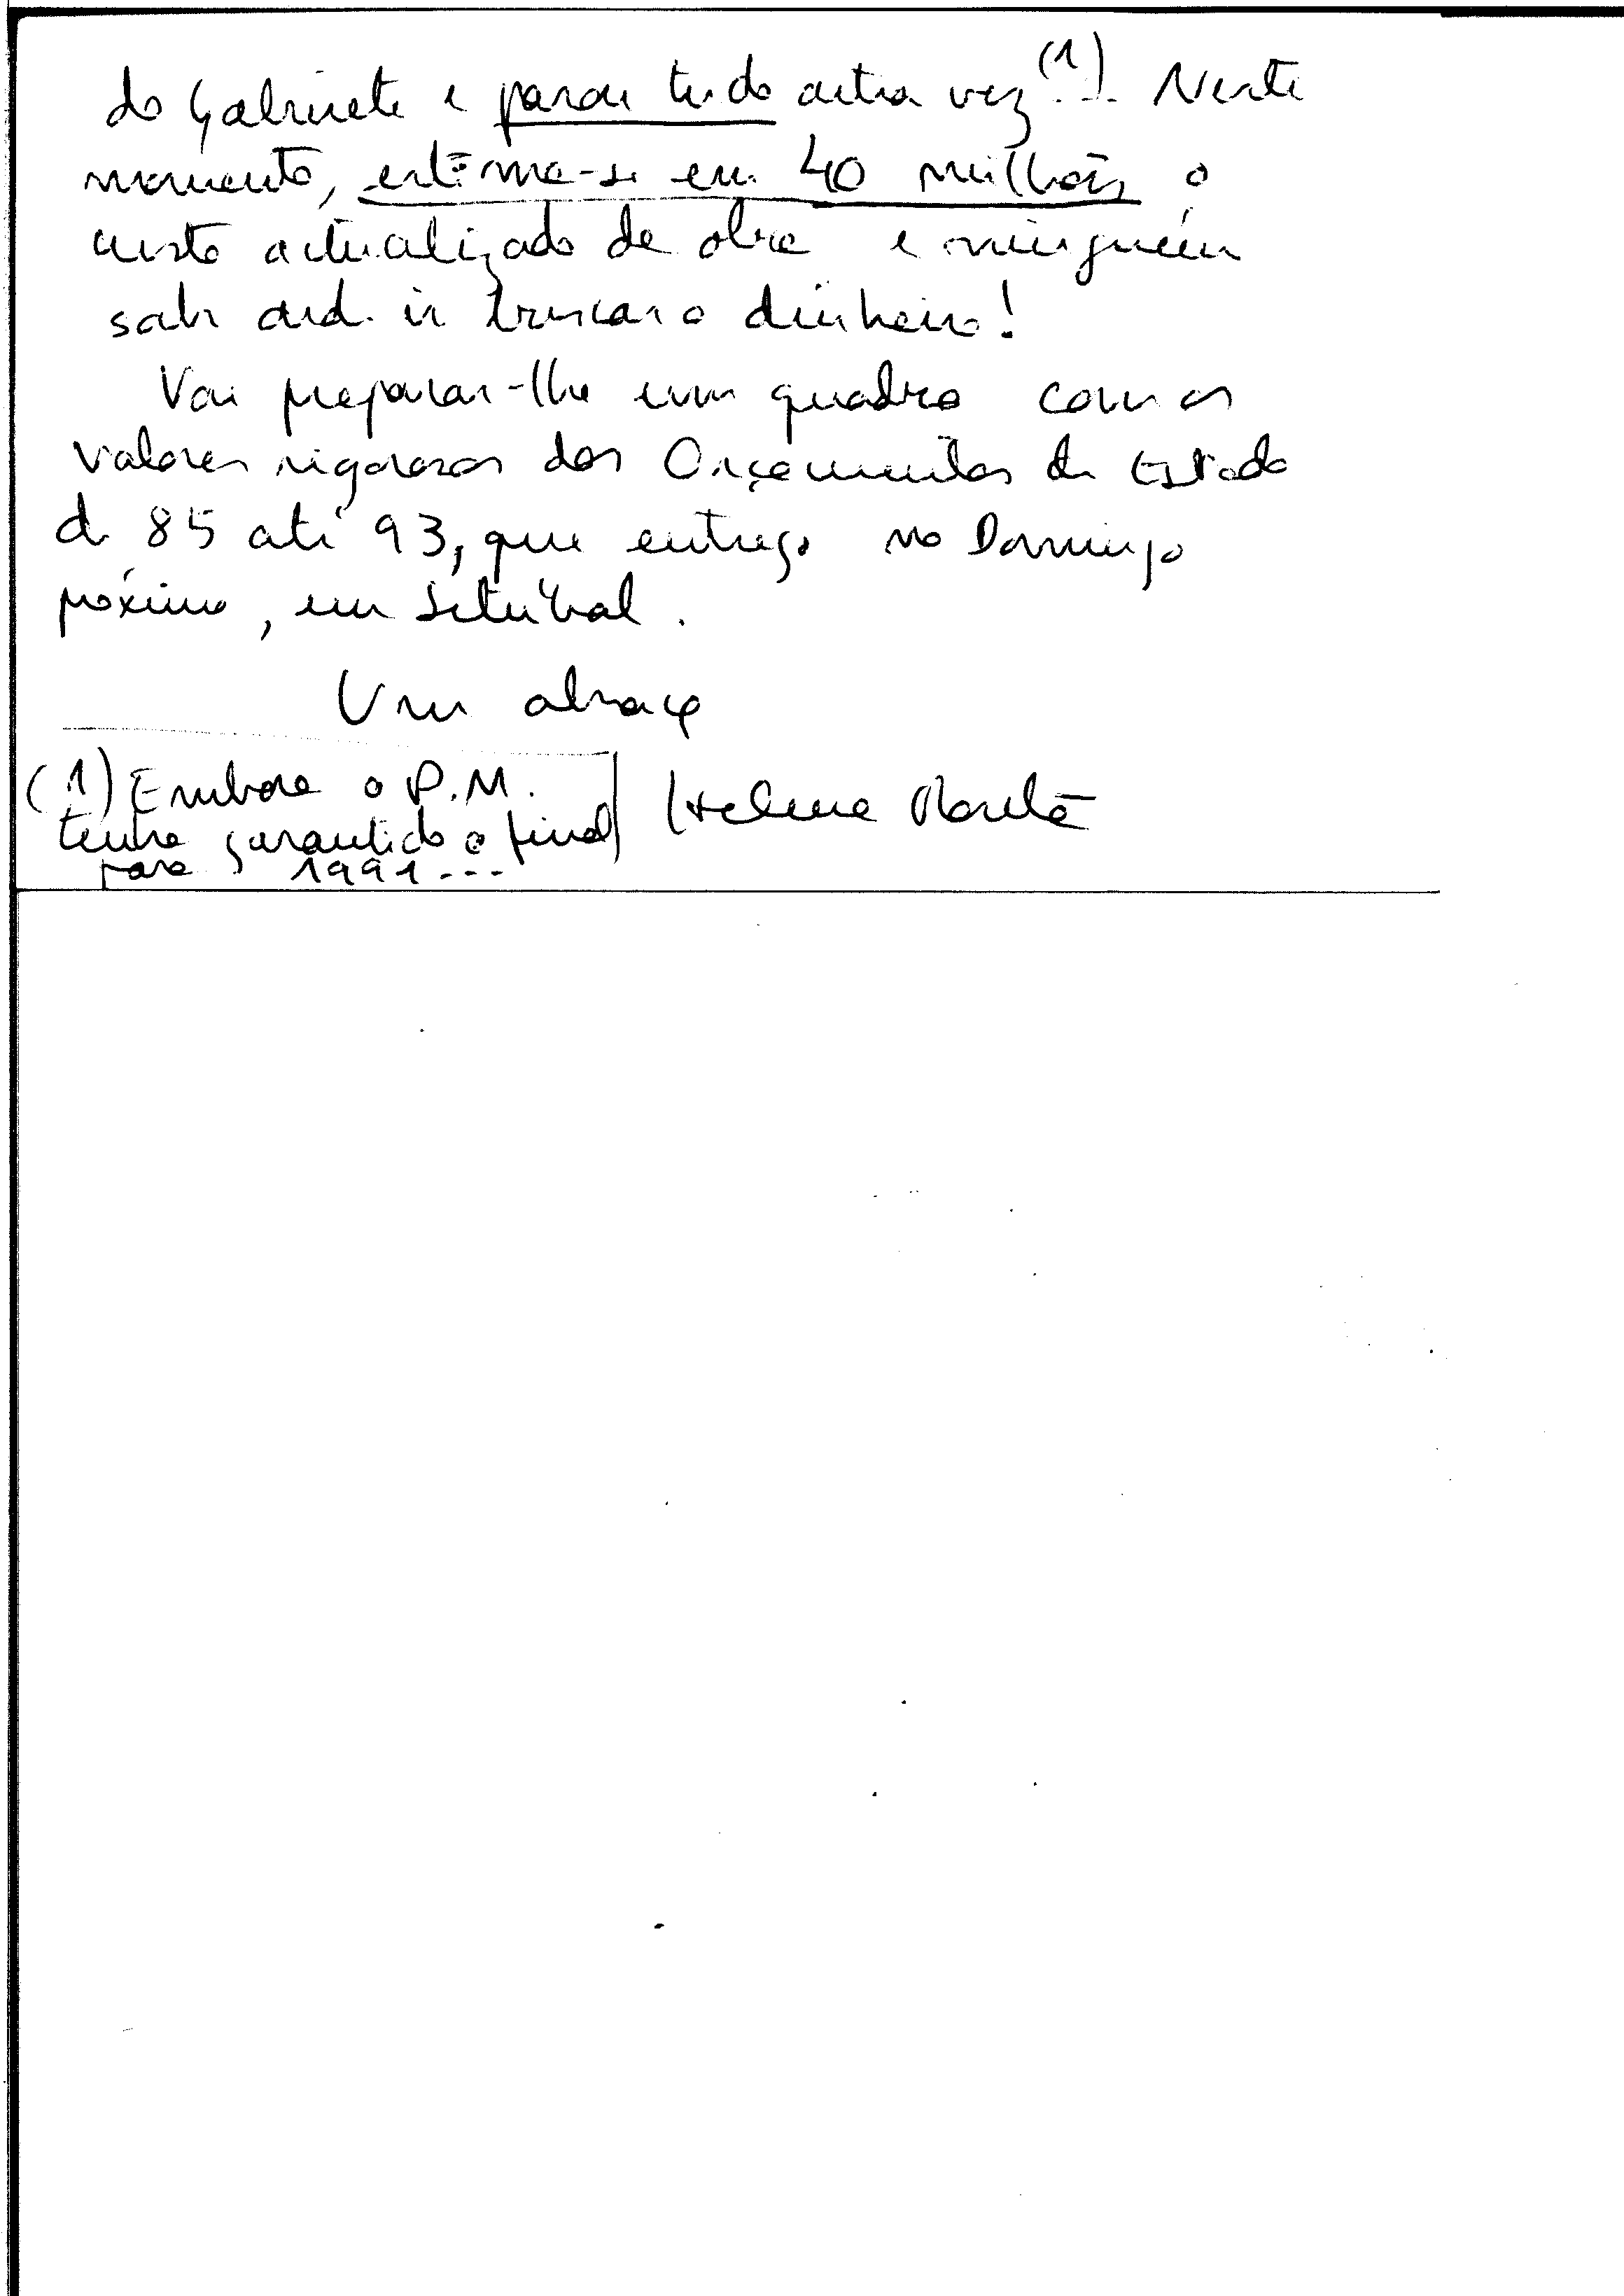 do Gabinete e parou tudo outra vez (1)... Neste
momento, estima-se em 40 milhões o
custo actualizado da obra e ninguém
sabe onde ir buscar o dinheiro!
Vou preparar-lhe um quadro com os
valores rigorosos dos Orçamentos de Estado
de 85 até 93, que entrego no Domingo
próximo, em Setúbal.
Um abraço
(1) Embora o P.M.
tenha garantido o final
para 1991...
Helena